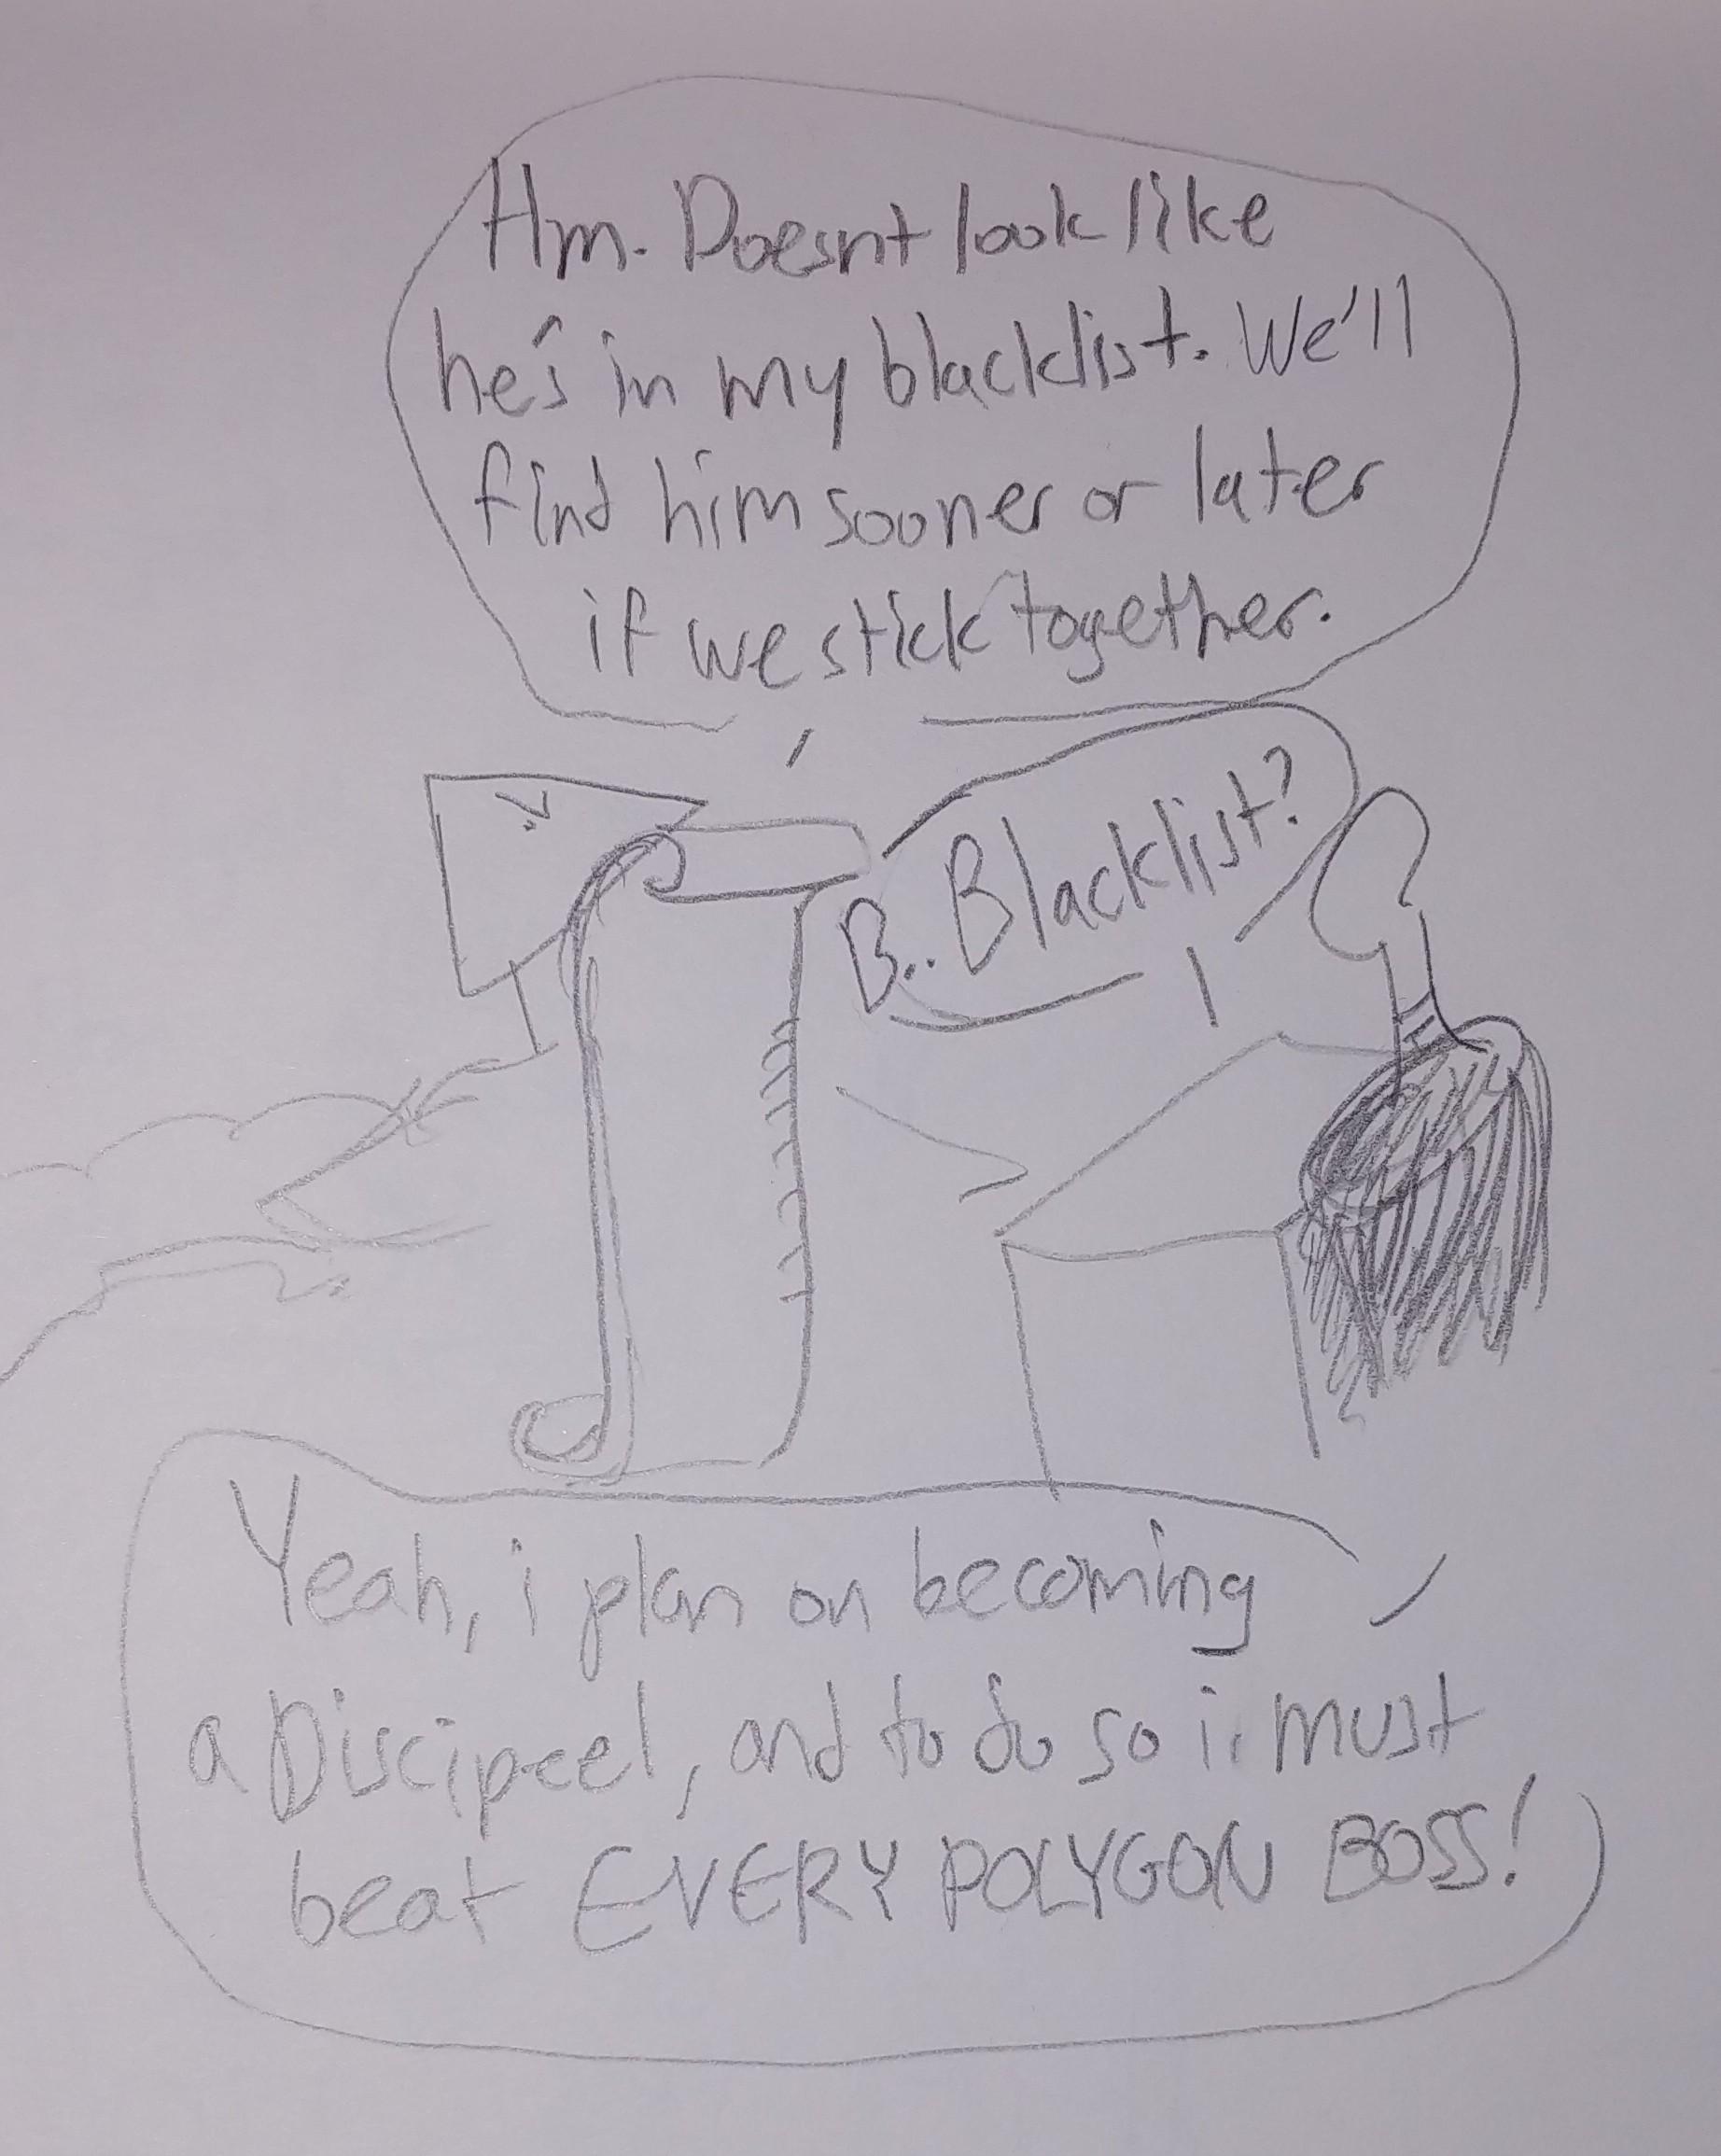 Hm. Doesnt look like
he's in my blacklist. We'll
find him sooner or later
if we stick together.
B.. Blacklist?
Yeah, i plan on becoming
a Discipeel, and to do so i must
beat EVERY POLYGON BOSS!